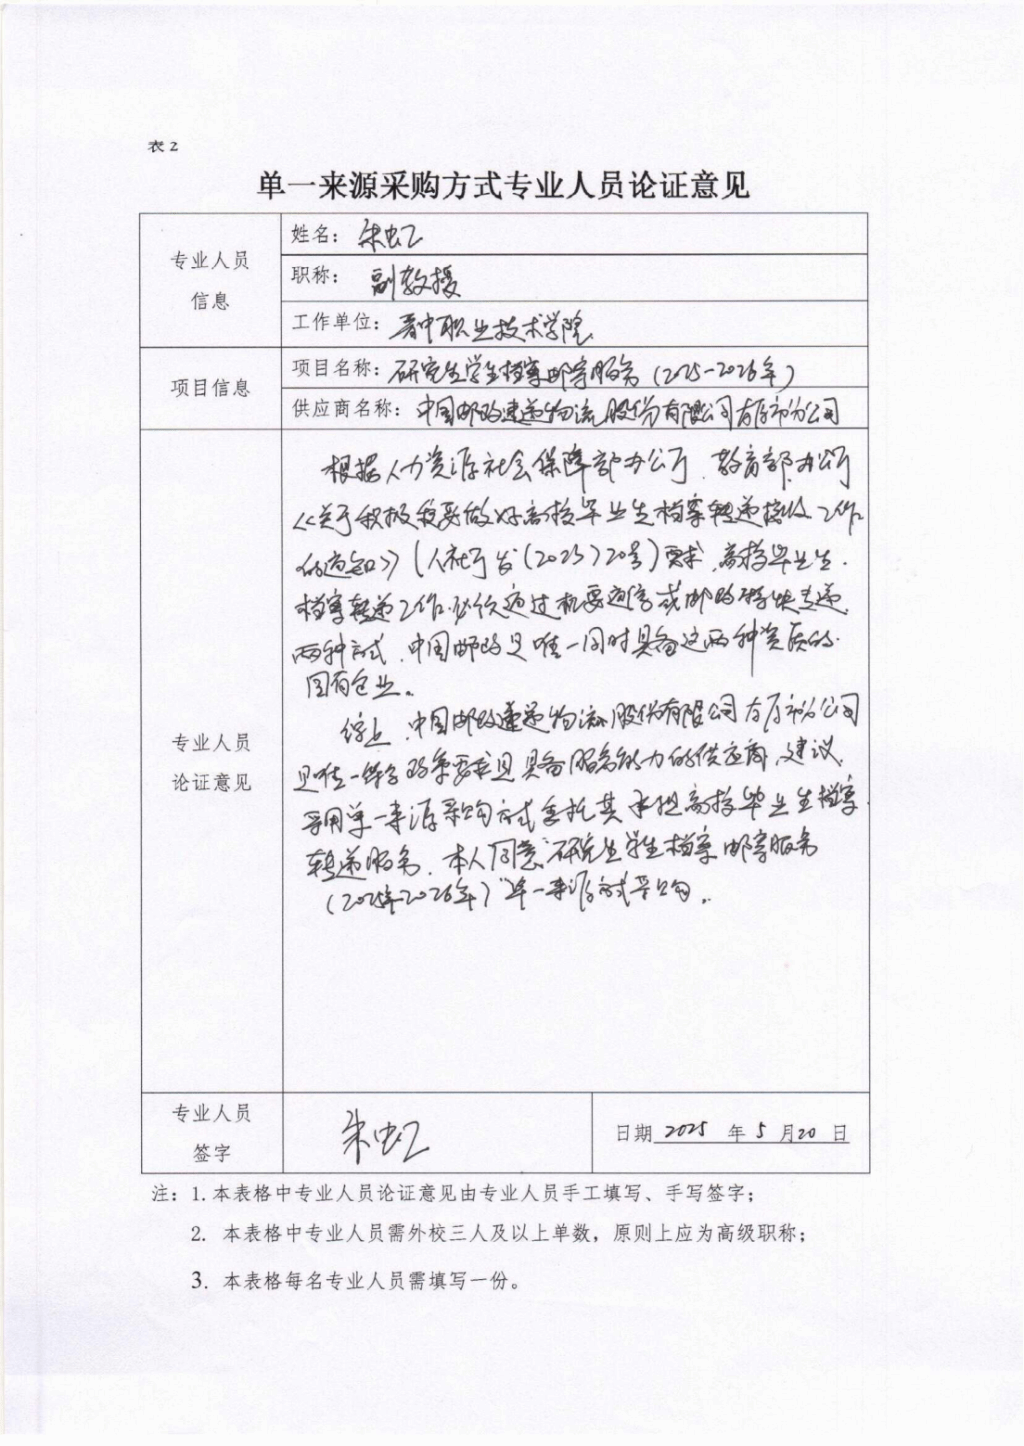 表2
单一来源采购方式专业人员论证意见
专业人员
信息
姓名：朱虹
职称：副教授
工作单位：晋中职业技术学院
项目信息
项目名称：研究生学生档案邮寄服务（2025-2026年）
供应商名称：中国邮政速递物流股份有限公司太原市分公司
专业人员
论证意见
根据人力资源社会保障部办公厅、教育部办公厅
《关于积极稳妥做好高校毕业生档案转递接收工作
的通知》（人社厅发（2023）20号）要求，高校毕业生
档案转递工作必须通过机要通信或邮政特快专递
两种方式，中国邮政是唯一同时具备这两种资质的
国有企业。
综上，中国邮政速递物流股份有限公司太原市分公司
是唯一符合政策要求且具备服务能力的供应商，建议
采用单一来源采购方式委托其承担高校毕业生档案
转递服务，本人同意"研究生学生档案邮寄服务
（2025年-2026年）"单一来源方式采购。
专业人员
签字
朱虹
日期 2025 年 5 月 20 日
注：1.本表格中专业人员论证意见由专业人员手工填写、手写签字；
2. 本表格中专业人员需外校三人及以上单数，原则上应为高级职称；
3. 本表格每名专业人员需填写一份。